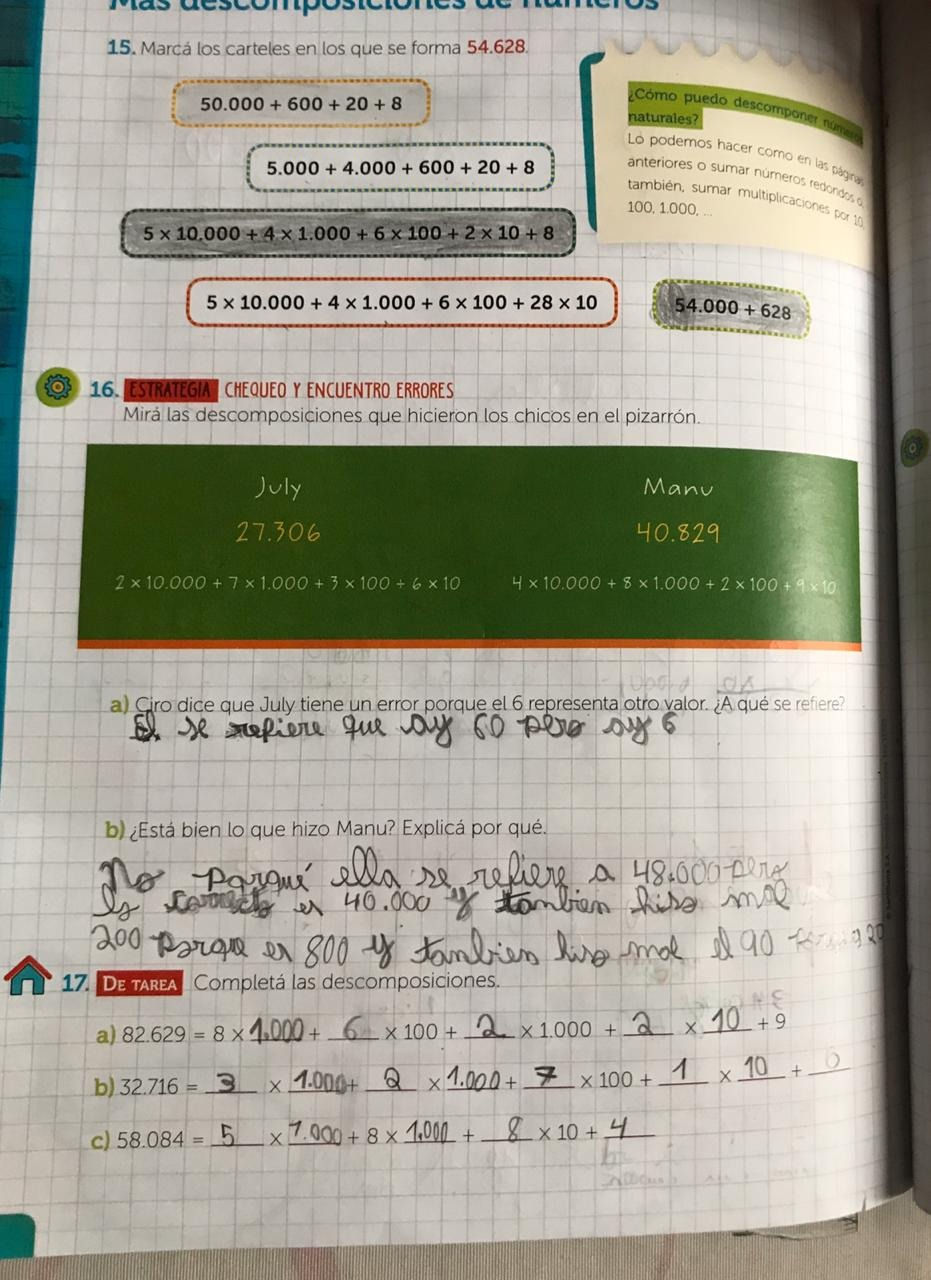 Más descomposiciones de números
15. Marcá los carteles en los que se forma 54.628.
50.000 + 600 + 20 + 8
5.000 + 4.000 + 600 + 20 + 8
5 x 10.000 + 4 x 1.000 + 6 x 100 + 2 x 10 + 8
5 x 10.000 + 4 x 1.000 + 6 x 100 + 28 x 10
54.000 + 628
¿Cómo puedo descomponer números
naturales?
Lo podemos hacer como en las páginas
anteriores o sumar números redondos o,
también, sumar multiplicaciones por 10,
100, 1.000, ...
16. ESTRATEGIA CHEQUEO Y ENCUENTRO ERRORES
Mirá las descomposiciones que hicieron los chicos en el pizarrón.
July
27.306
2 x 10.000 + 7 x 1.000 + 3 x 100 + 6 x 10
Manu
40.829
4 x 10.000 + 8 x 1.000 + 2 x 100 + 9 x 10
a) Ciro dice que July tiene un error porque el 6 representa otro valor. ¿A qué se refiere?
El se refiere que ay 60 pero ay 6
b) ¿Está bien lo que hizo Manu? Explicá por qué.
No parqué ella se refiere a 48.000 pero
lo correcto es 40.000 y tambien hiso mal
200 porque es 800 y tambien hiso mal el 90 20
17. DE TAREA Completá las descomposiciones.
a) 82.629 = 8 x 1.000 + 6 x 100 + 2 x 1.000 + 2 x 10 + 9
b) 32.716 = 3 x 1.000 + 2 x 1.000 + 7 x 100 + 1 x 10 + 0
c) 58.084 = 5 x 1.000 + 8 x 1.000 + 8 x 10 + 4